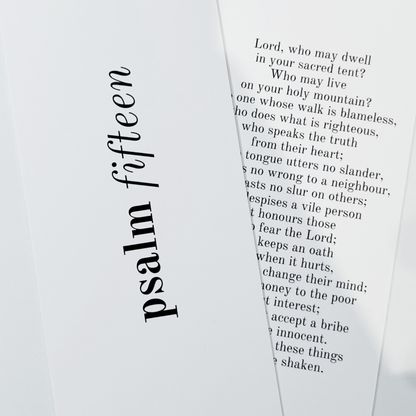 psalm fifteen
Lord, who may dwell
in your sacred tent?
Who may live
on your holy mountain?
one whose walk is blameless,
does what is righteous,
who speaks the truth
from their heart;
tongue utters no slander,
no wrong to a neighbour,
no slur on others;
a vile person
honours those
fear the Lord;
keeps an oath
when it hurts,
change their mind;
to the poor
interest;
accept a bribe
innocent.
these things
shaken.